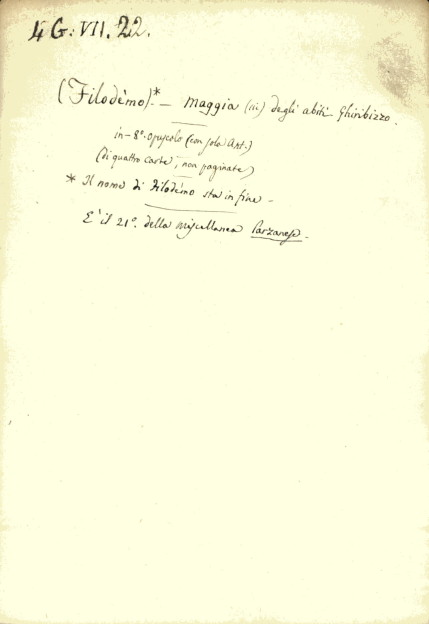 4 G. VII. 22.
(Filodèmo)*. — Maggia (sic) degli abiti Ghiribizzo.
in-8°. opuscolo (con sola Ant.)
(di quattro carte, non paginate)
* Il nome di Filodèmo sta in fine -
È il 21°. della miscellanea Parzanese.